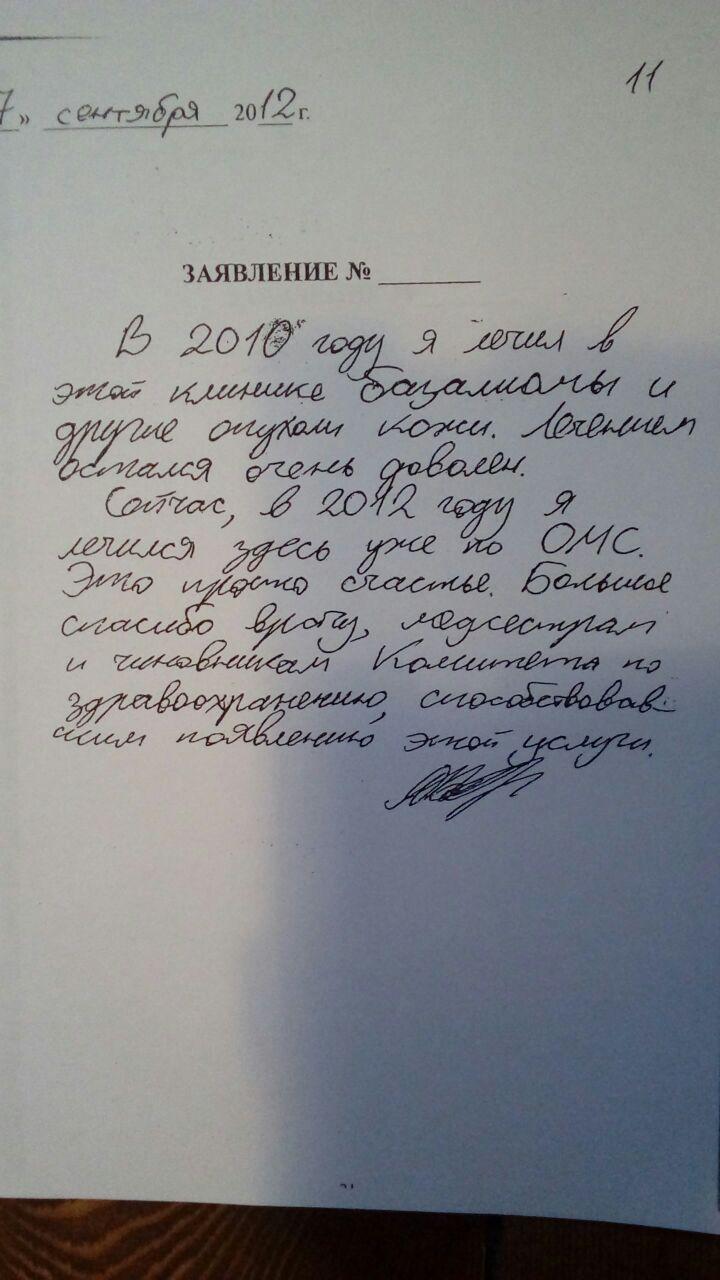 11
7» сентября 2012 г.
ЗАЯВЛЕНИЕ №
В 2010 году я лечил в
этой клинике базалиомы и
другие опухоли кожи. Лечением
остался очень доволен.
Сейчас, в 2012 году я
лечился здесь уже по ОМС.
Это просто счастье. Большое
спасибо врачу, медсестрам
и чиновникам Комитета по
здравоохранению, способствовав-
шим появлению этой услуги.